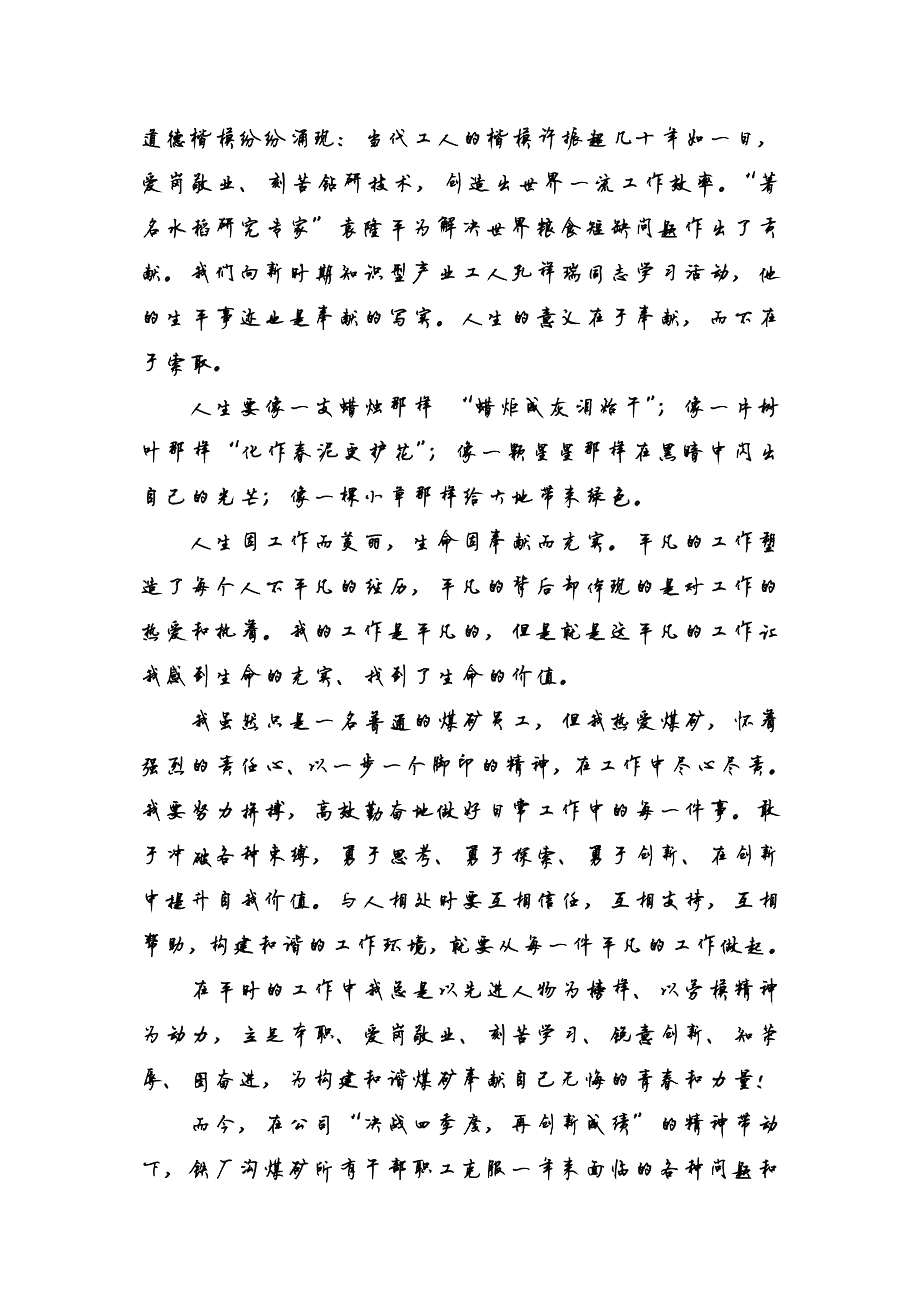 道德楷模纷纷涌现：当代工人的楷模许振超几十年如一日，
爱岗敬业、刻苦钻研技术，创造出世界一流工作效率。“著
名水稻研究专家”袁隆平为解决世界粮食短缺问题作出了贡
献。我们向新时期知识型产业工人孔祥瑞同志学习活动，他
的生平事迹也是奉献的写实。人生的意义在于奉献，而不在
于索取。
人生要像一支蜡烛那样 “蜡炬成灰泪始干”；像一片树
叶那样“化作春泥更护花”；像一颗星星那样在黑暗中闪出
自己的光芒；像一棵小草那样给大地带来绿色。
人生因工作而美丽，生命因奉献而充实。平凡的工作塑
造了每个人不平凡的经历，平凡的背后却体现的是对工作的
热爱和执着。我的工作是平凡的，但是就是这平凡的工作让
我感到生命的充实、找到了生命的价值。
我虽然只是一名普通的煤矿员工，但我热爱煤矿，怀着
强烈的责任心、以一步一个脚印的精神，在工作中尽心尽责。
我要努力拼搏，高效勤奋地做好日常工作中的每一件事。敢
于冲破各种束缚，勇于思考、勇于探索、勇于创新、在创新
中提升自我价值。与人相处时要互相信任，互相支持，互相
帮助，构建和谐的工作环境，就要从每一件平凡的工作做起。
在平时的工作中我总是以先进人物为榜样、以劳模精神
为动力，立足本职、爱岗敬业、刻苦学习、锐意创新、知荣
辱、图奋进，为构建和谐煤矿奉献自己无悔的青春和力量！
而今，在公司“决战四季度，再创新成绩”的精神带动
下，铁厂沟煤矿所有干部职工克服一年来面临的各种问题和